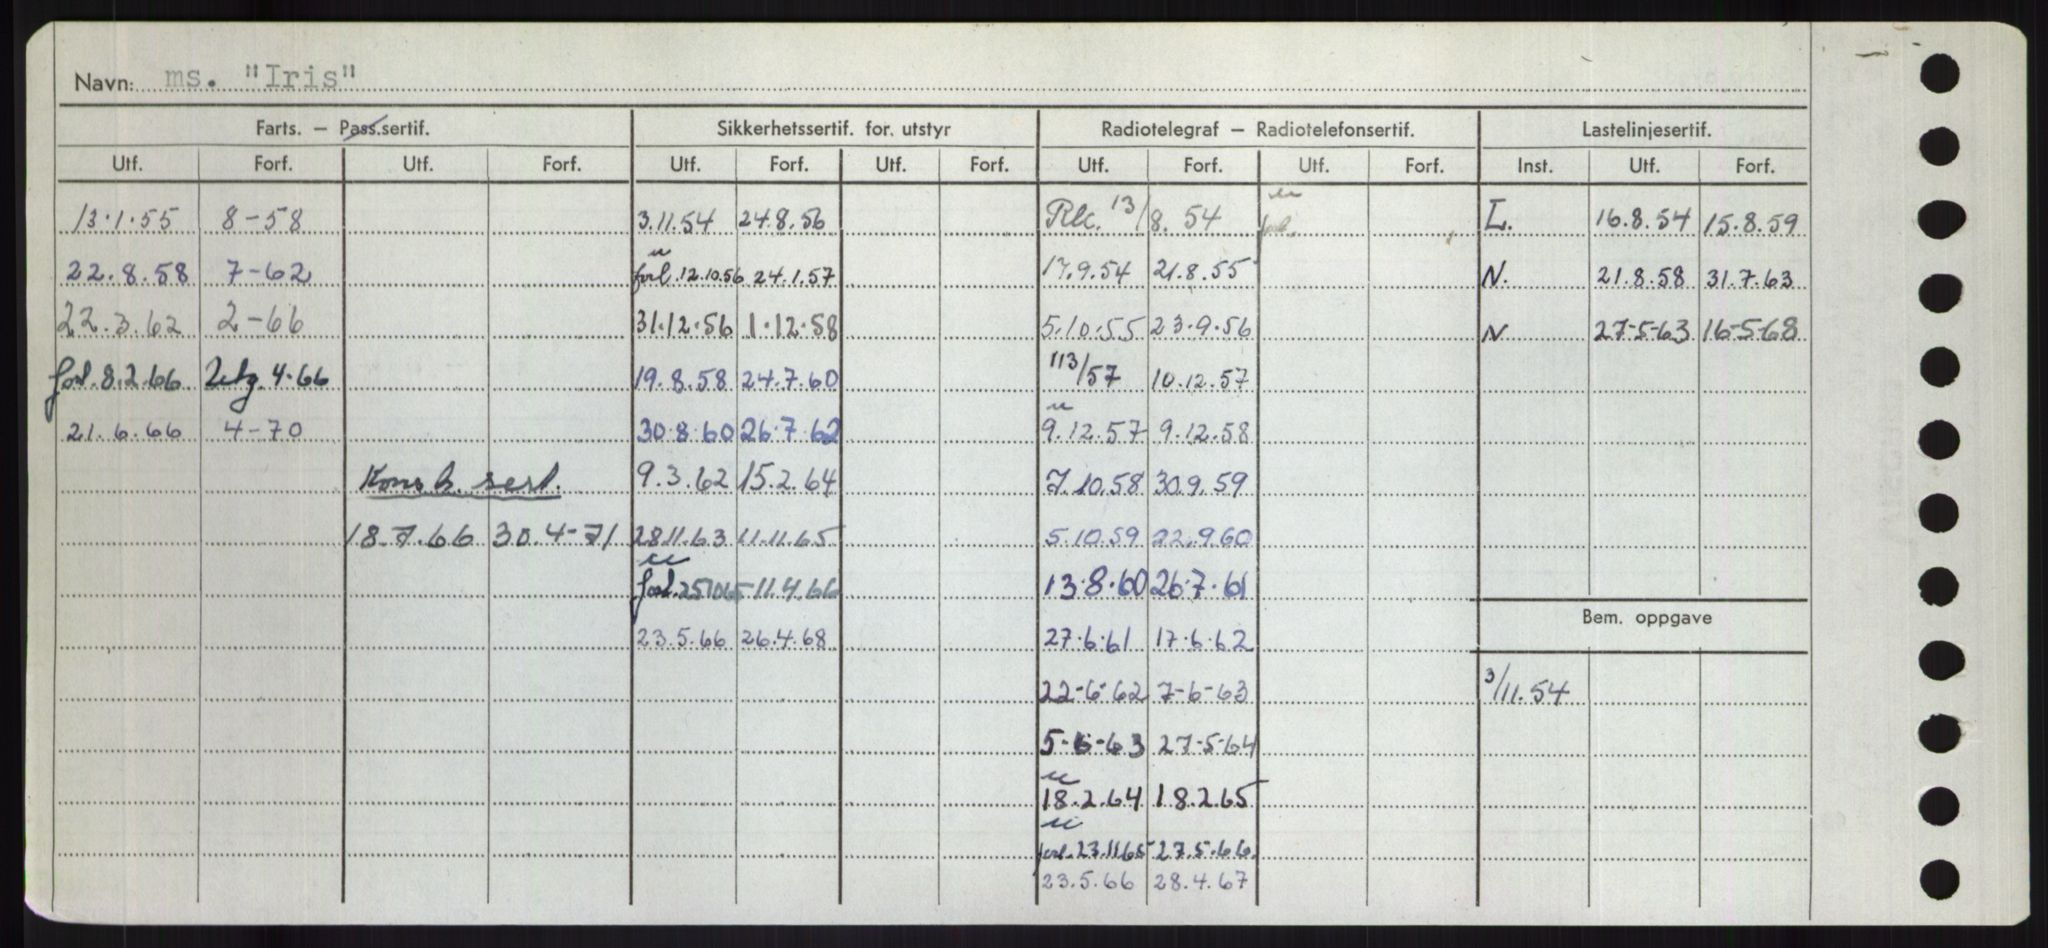 Navn: ms. "Iris"
Farts. – Pass.sertif. Sikkerhetssertif. for. utstyr Radiotelegraf – Radiotelefonsertif. Lastelinjesertif.
Utf. Forf. Utf. Forf. Utf. Forf. Utf. Forf. Utf. Forf. Utf. Forf. Inst. Utf. Forf.
13.1.55 8-58 3.11.54 24.8.56 13/8.54 L. 16.8.54 15.8.59
22.8.58 7-62 forl. 12.10.56 24.1.57 17.9.54 21.8.55 N. 21.8.58 31.7.63
22.3.62 2-66 31.12.56 1.12.58 5.10.55 23.9.56 N 27-5-63 16-5-68
forl. 8.2.66 4.66 19.8.58 24.7.60 113/57 10.12.57
21.6.66 4-70 30.8.60 26.7.62 9.12.57 9.12.58
Komb. sert. 9.3.62 15.2.64 7.10.58 30.9.59
18.7.66 30.4-71 28.11.63 11.11.65 5.10.59 22.9.60
forl. 251065 11.4.66 13.8.60 26.7.61
Bem. oppgave
23.5.66 26.4.68 27.6.61 17.6.62
22-6-62 7-6-63 3/11.54
5-6-63 27-5-64
18.2.64 18.2.65
forl. 23.11.65 27.5.66.
23.5.66 28.4.67